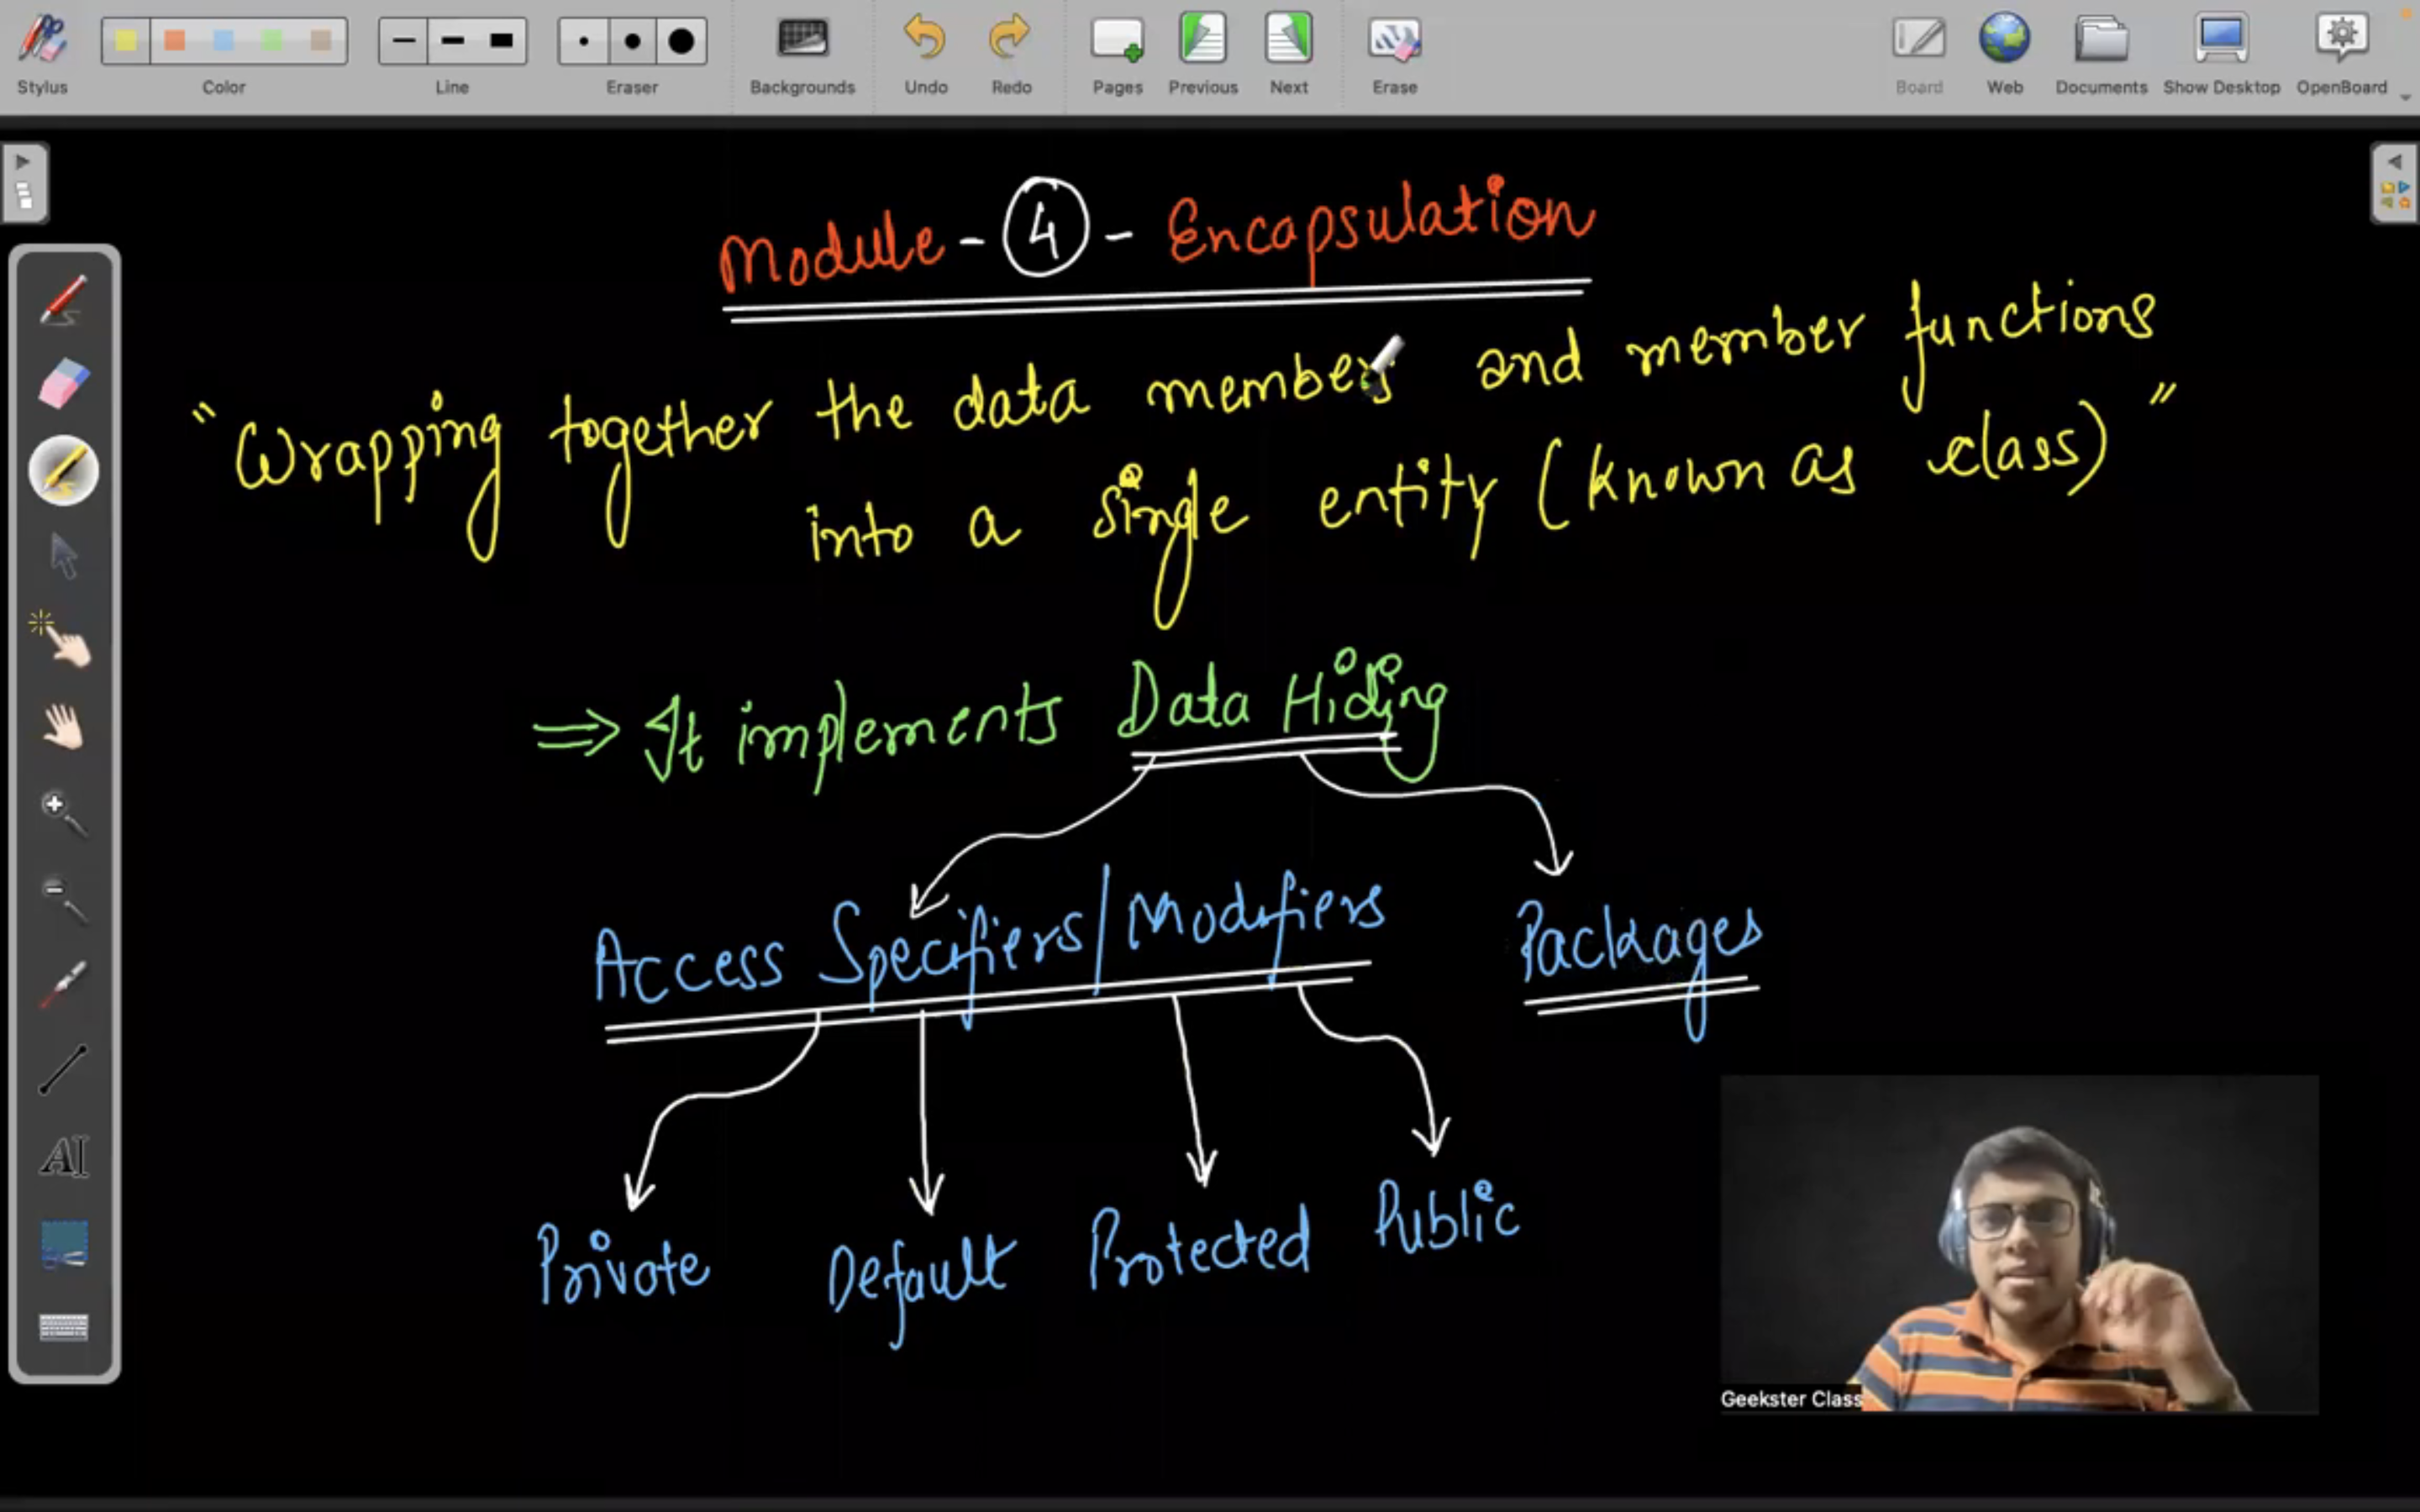 Stylus
Color
Line
Eraser
Backgrounds
Undo
Redo
Pages
Previous
Next
Erase
Board
Web
Documents
Show Desktop
OpenBoard
Module - 4 - Encapsulation
"Wrapping together the data members and member functions
into a single entity (known as class)"
⇒ It implements Data Hiding
Access Specifiers/Modifiers
Packages
Private
Default
Protected
Public
AI
Geekster Class